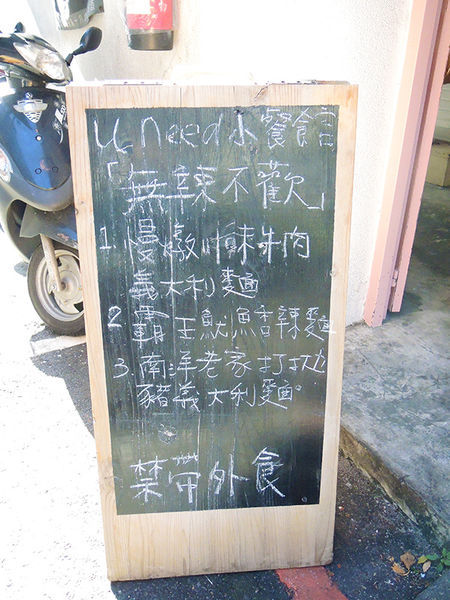 u need 小餐館
「無辣不歡」
1. 慢燉川味牛肉
義大利麵
2. 霸王魷魚香辣麵
3. 南洋老家打拋
豬義大利麵
禁帶外食